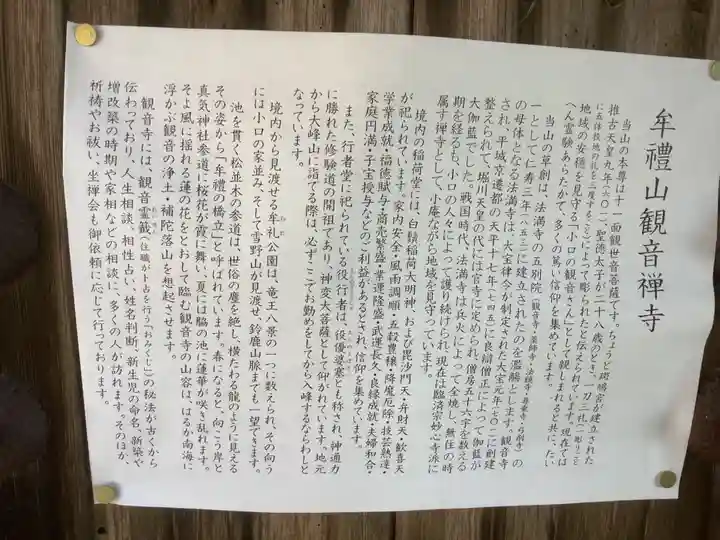 牟禮山観音禅寺
当山の本尊は十一面観世音菩薩です。ちょうど斑鳩宮が建立された
推古天皇九年(六〇一)聖徳太子が二十八歳のとき、一刀三礼(一彫りごと
に五体投地の礼を三度する)によって彫られたと伝えられています。現在では
地域の安穏を見守る「小口の観音さん」として親しまれると共に、たい
へん霊験あらたかで、多くの篤い信仰を集めています。
当山の草創は、法満寺の五別院(観音寺・薬師寺・法鏡寺・尊乗寺・弓削寺)の
一として仁寿三年(八五三)に建立されたのを濫觴とします。観音寺
の母体となる法満寺は、大宝律令が制定された大宝元年(七〇一)に創建
され、平城京遷都の天平十七年(七四五)に良辯僧正によって伽藍が
整えられて、堀川天皇の代には官寺に定められ、僧房五十六宇を数える
大伽藍でした。戦国時代、法満寺は兵火によって全焼し、無住の時
期を経るも、小口の人々によって護り続けられ、現在は臨済宗妙心寺派に
属す禅寺として、小庵ながら地域を見守っています。
境内の稲荷堂には、白鬚稲荷大明神、および毘沙門天・弁財天・歓喜天
が祀られています。家内安全・風雨調順・五穀豊穣・降魔厄除・技芸熟達・
学業成就・福徳賦与・商売繁盛・業運隆盛・武運長久・良縁成就・夫婦和合・
家庭円満・子宝授与などのご利益があるとされ、信仰を集めています。
また、行者堂に祀られている役行者は、役優婆塞とも称され、神通力
に勝れた修験道の開祖であり、神変大菩薩として仰がれています。地元
から大峰山に詣でる際は、必ずここでお勤めをしてから入峰するならわしと
なっています。
境内から見渡せる牟礼公園は、竜王八景の一つに数えられ、その向う
には小口の家並み、そして雪野山が見渡せ、鈴鹿山脈までも一望できます。
池を貫く松並木の参道は、世俗の塵を絶し、横たわる龍のように見える
その姿から「牟禮の橋立」と呼ばれています。春になると、向こう岸と
真気神社参道に桜花が霞に舞い、夏には脇の池に蓮華が咲き乱れます。
そよ風に揺れる蓮の花をとおして臨む観音寺の山容は、はるか南海に
浮かぶ観音の浄土・補陀落山を想起させます。
観音寺には「観音霊籤(住職が卜占を行う「おみくじ」)」の秘法が古くから
伝わっており、人生相談、相性占い、姓名判断、新生児の命名、新築や
増改築の時期や家相などの相談に、多くの人が訪れます。そのほか、
祈祷やお祓い、坐禅会も御依頼に応じて行っております。